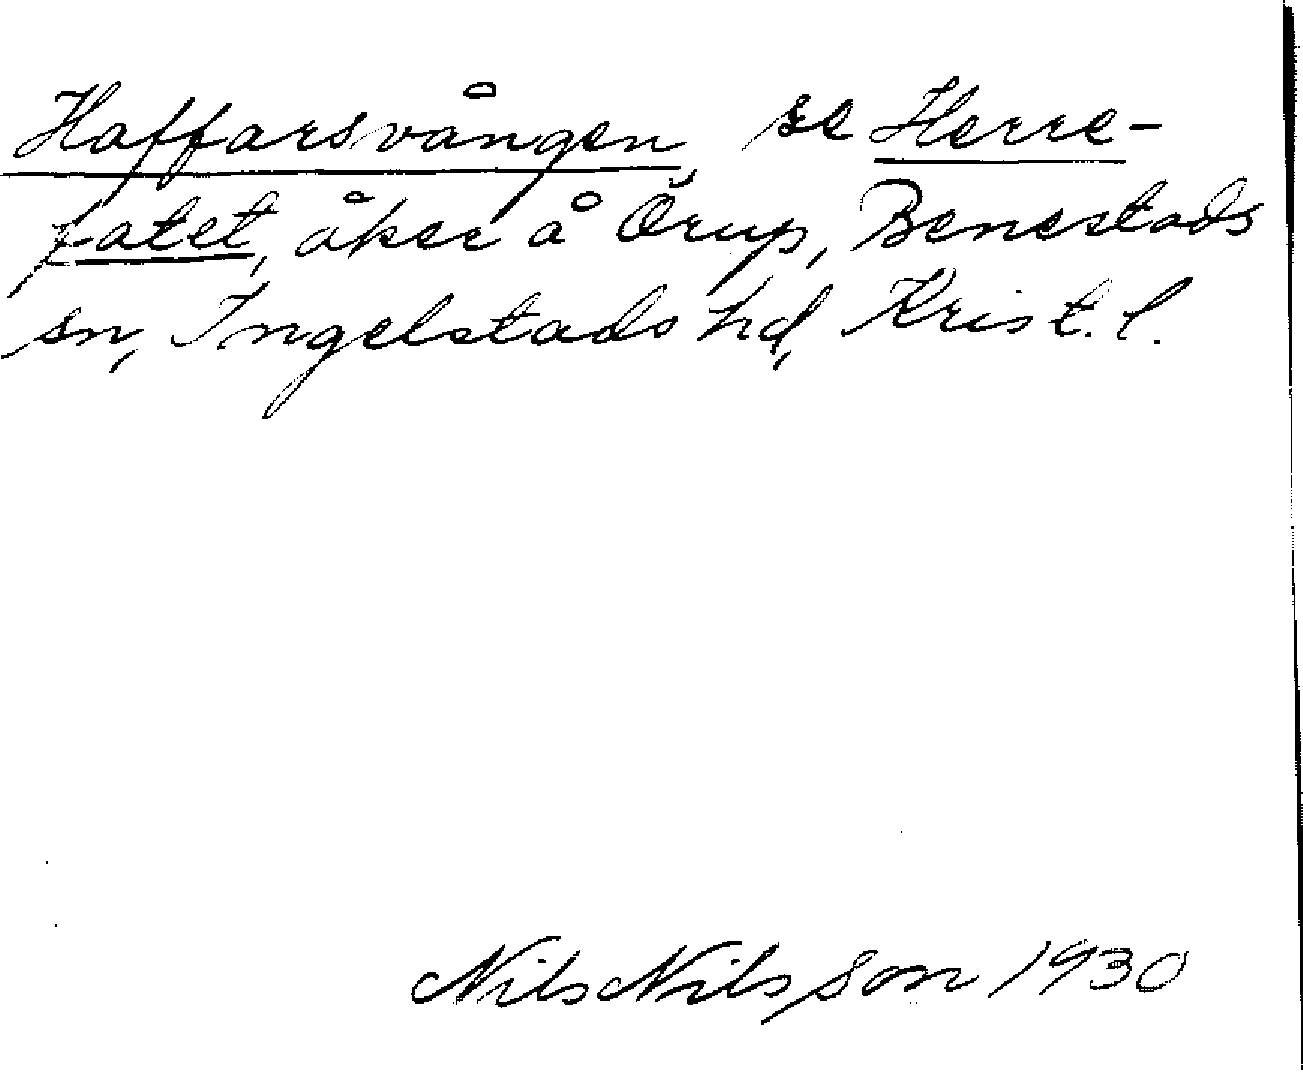 Haffarsvången, se Herre-
fatet, åker å Örup, Benestads
sn, Ingelstads hd, Krist. l.
Nils Nilsson 1930